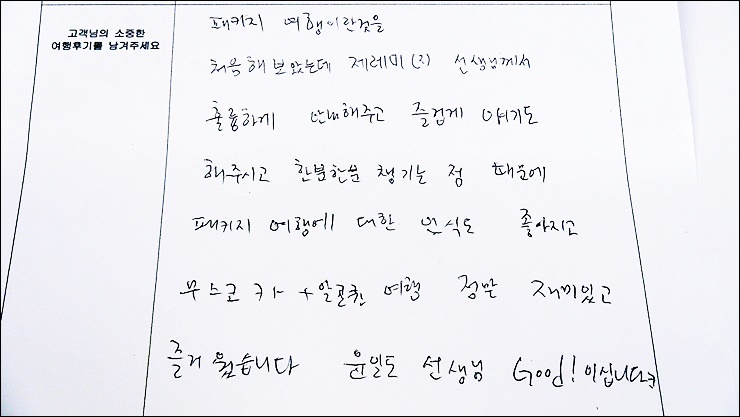 고객님의 소중한
여행후기를 남겨주세요
패키지 여행이란것을
처음해보았는데 제레미(지) 선생님께서
훌륭하게 안내해주고 즐겁게 얘기도
해주시고 한분한분 챙기는 점 때문에
패키지 여행에 대한 인식도 좋아지고
무스코카 + 알곤퀸 여행 정말 재미있고
즐거웠습니다 윤일도 선생님 Good! 이십니다ㅋ